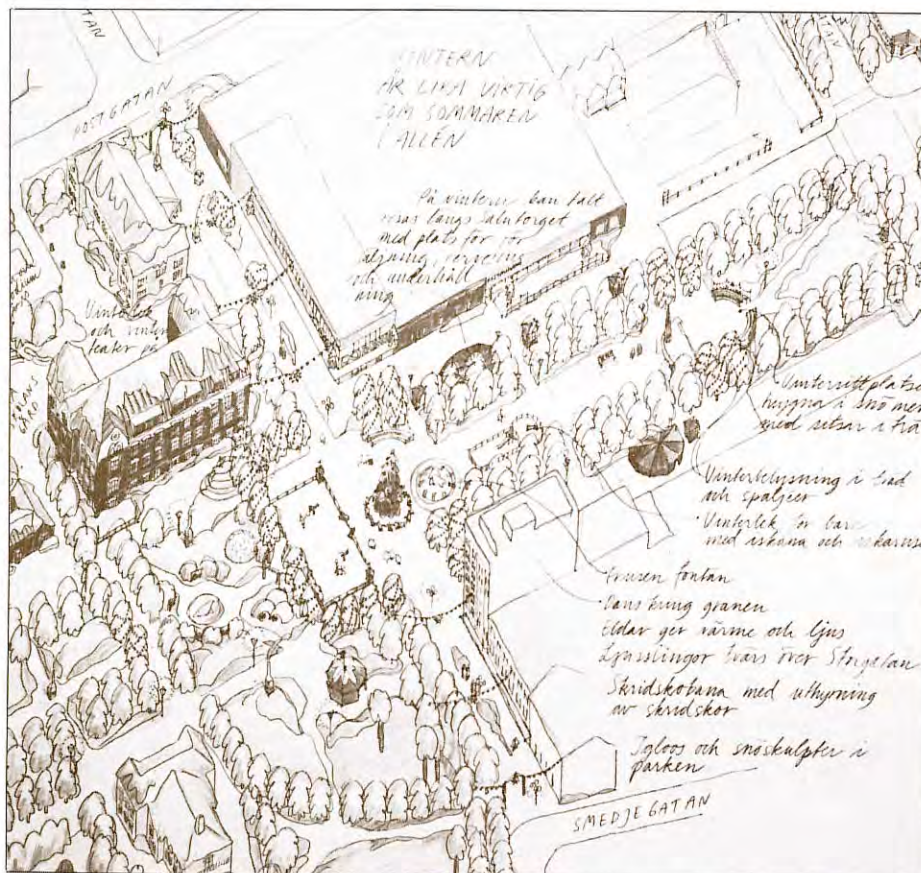 TAN
TAN
POSTGATAN
VINTERN
ÄR LIKA VIKTIG
SOM SOMMAREN
I ALLÉN
På vintern kan tält
resas längs salutorget
med plats för för
säljning, servering
och underhåll
ning
Vinterlek
och vinter
teater på
FRANS
GÅRD
Vintersittplats
byggna i snö med
med sitsar i trä
Vinterbelysning i träd
och spaljeer
· Vinterlek för barn
med iskana och iskarusell
Frusen fontän
· Dans kring granen
Eldar ger värme och ljus
Ljusslingor tvärs över Storgatan
Skridskobana med uthyrning
av skridskor
Igloos och snöskulpter i
parken
SMEDJEGATAN